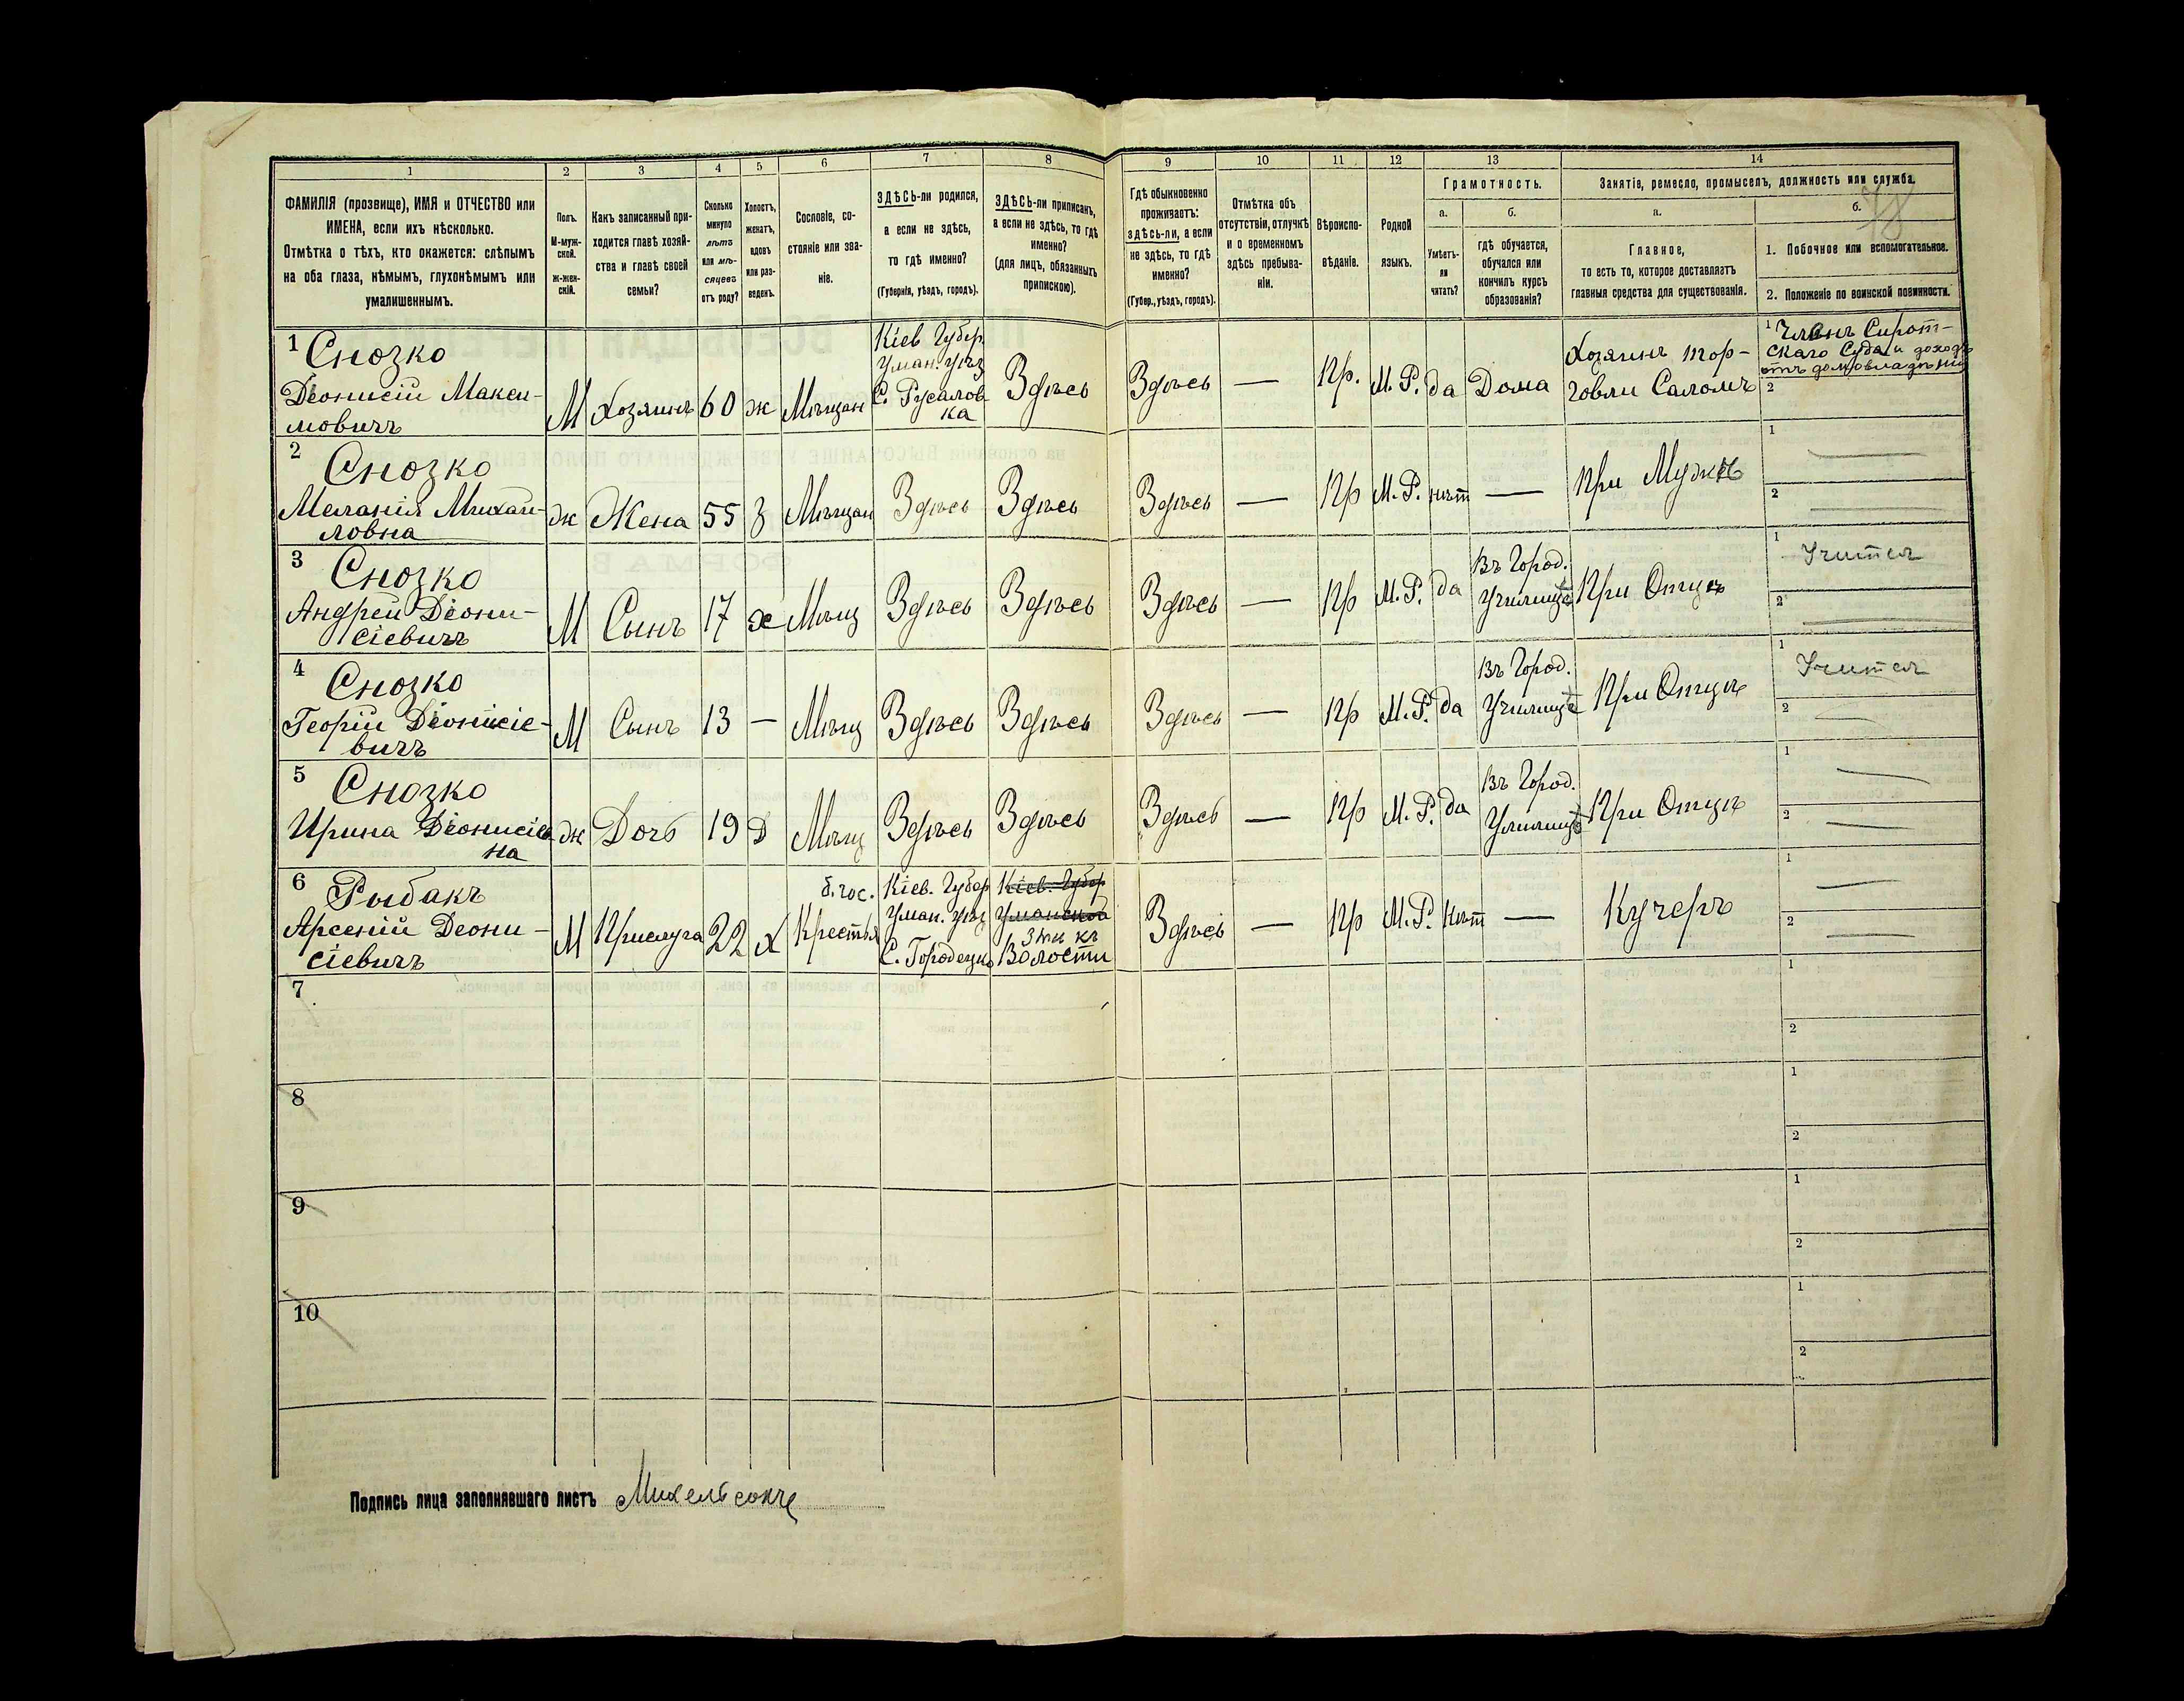 1 2 3 4 5 6 7 8 9 10 11 12 13 14
ФАМИЛІЯ (прозвище), ИМЯ и ОТЧЕСТВО или
ИМЕНА, если ихъ нѣсколько.
Отмѣтка о тѣхъ, кто окажется: слѣпымъ
на оба глаза, нѣмымъ, глухонѣмымъ или
умалишеннымъ.
Полъ.
М-муж-
ской.
Ж-жен-
скій.
Какъ записанный при-
ходится главѣ хозяй-
ства и главѣ своей
семьи?
Сколько
минуло
лѣтъ
или мѣ-
сяцевъ
отъ роду?
Холостъ,
женатъ,
вдовъ
или раз-
веденъ.
Сословіе, со-
стояніе или зва-
ніе.
ЗДѢСЬ-ли родился,
а если не здѣсь,
то гдѣ именно?
(Губернія, уѣздъ, городъ).
ЗДѢСЬ-ли приписанъ,
а если не здѣсь, то гдѣ
именно?
(для лицъ, обязанныхъ
припискою).
Гдѣ обыкновенно
проживаетъ:
здѣсь-ли, а если
не здѣсь, то гдѣ
именно?
(Губер., уѣздъ, городъ).
Отмѣтка объ
отсутствіи, отлучкѣ
и о временномъ
здѣсь пребыва-
ніи.
Вѣроиспо-
вѣданіе.
Родной
языкъ.
Грамотность.
а.
Умѣетъ-
ли
читать?
б.
гдѣ обучается,
обучался или
кончилъ курсъ
образованія?
Занятіе, ремесло, промыселъ, должность или служба.
а.
Главное,
то есть то, которое доставляетъ
главныя средства для существованія.
б.
1. Побочное или вспомогательное.
2. Положеніе по воинской повинности.
1 Сночко
Діонисій Макси-
мовичъ
М
Хозяинъ
60
ж
Мѣщан
Кіев Губер
Уман. уѣз
С. Русалов
ка
Здѣсь
Здѣсь
—
Пр.
М. Р.
да
Дома
Хозяинъ тор-
говли Саломъ
1 Членъ Сирот-
скаго Суда и доходъ
отъ домовладѣнія
2
2 Сночко
Меланія Михай-
ловна
ж
Жена
55
З
Мѣщан
Здѣсь
Здѣсь
Здѣсь
—
Пр
М. Р.
нѣт
—
При Мужѣ
1 —
2 —
3 Сночко
Андрей Діони-
сіевичъ
М
Сынъ
17
х
Мѣщ
Здѣсь
Здѣсь
Здѣсь
—
Пр
М. Р.
да
Въ Город.
Училищѣ
При Отцѣ
1 Учится
2 —
4 Сночко
Георгій Діонисіе-
вичъ
М
Сынъ
13
—
Мѣщ
Здѣсь
Здѣсь
Здѣсь
—
Пр
М. Р.
да
Въ Город.
Училищѣ
При Отцѣ
1 Учится
2 —
5 Сночко
Ирина Діонисіев
на
ж
Дочь
19
Д
Мѣщ
Здѣсь
Здѣсь
Здѣсь
—
Пр
М. Р.
да
Въ Город.
Училищѣ
При Отцѣ
1 —
2 —
6 Рыбакъ
Арсеній Деони-
сіевичъ
М
Прислуга
22
Х
б. гос.
Крестья
Кіев. Губер
Уман. уѣз
С. Городецко
Кіев. Губер
Уманской
Волости
Здѣсь
—
Пр
М. Р.
Нѣт
—
Кучеръ
1 —
2 —
7
1
2
8
1
2
9
1
2
10
1
2
Подпись лица заполнявшаго листъ